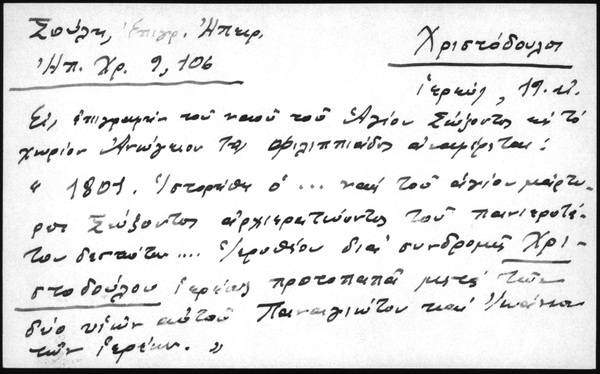 Σούλη, Ἐπιγρ. Ἠπειρ.
Ἠπ. Χρ. 9, 106
Χριστόδουλος
ἱερεύς, 19. αἰ.
Εἰς ἐπιγραφὴν τοῦ ναοῦ τοῦ Ἁγίου Σώζοντος εἰς τὸ
χωρίον Ἀνώγειον τῆς Φιλιππιάδος ἀναφέρεται:
" 1801. Ἱστορήθη ὁ ... ναὸς τοῦ ἁγίου μάρτυ-
ρος Σώζοντος ἀρχιερατεύοντος τοῦ πανιεροτά-
του δεσπότου .... Ἱεροθέου διὰ συνδρομῆς Χρι-
στοδούλου ἱερέως πρωτοπαπᾶ μετὰ τῶν
δύο υἱῶν αὐτοῦ Παναγιώτου καὶ Ἰωάννου
τῶν ἱερέων. "